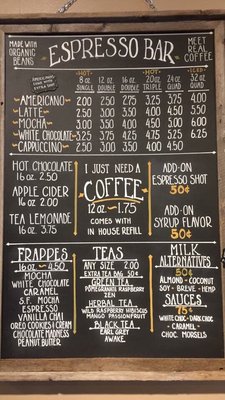 MADE WITH ORGANIC BEANS
ESPRESSO BAR
MEET REAL COFFEE
HOT
HOT
ICED
8 oz. SINGLE
12 oz. DOUBLE
16 oz. DOUBLE
20 oz. TRIPLE
24 oz. QUAD
32 oz. QUAD
AMERICANO 2.00 2.50 2.75 3.25 3.75 4.00
LATTE 2.50 3.00 3.50 4.00 4.50 5.50
MOCHA 3.00 3.50 4.00 4.50 5.00 6.00
WHITE CHOCOLATE 3.25 3.75 4.25 4.75 5.25 6.25
CAPPUCCINO 2.50 3.00 3.50 4.00 4.50
HOT CHOCOLATE
16 oz. 2.50
APPLE CIDER
16 oz 2.00
TEA LEMONADE
16 oz. 3.75
I JUST NEED A
COFFEE
12 oz - 1.75
COMES WITH
IN HOUSE REFILL
ADD-ON
ESPRESSO SHOT
50¢
ADD-ON
SYRUP FLAVOR
50¢
FRAPPES
16 oz. - 4.50
MOCHA
WHITE CHOCOLATE
CARAMEL
S.F. MOCHA
ESPRESSO
VANILLA CHAI
OREO COOKIES & CREAM
CHOCOLATE MADNESS
PEANUT BUTTER
TEAS
ANY SIZE 2.00
EXTRA TEA BAG 50¢
GREEN TEA
POMEGRANATE RASPBERRY
ZEN
HERBAL TEA
WILD RASPBERRY HIBISCUS
MANGO PASSIONFRUIT
BLACK TEA
EARL GREY
AWAKE
MILK
ALTERNATIVES
50¢
ALMOND - COCONUT
SOY - BREVE - HEMP
SAUCES
75¢
WHITE CHOC - DARK CHOC
- CARAMEL -
CHOC. MORSELS